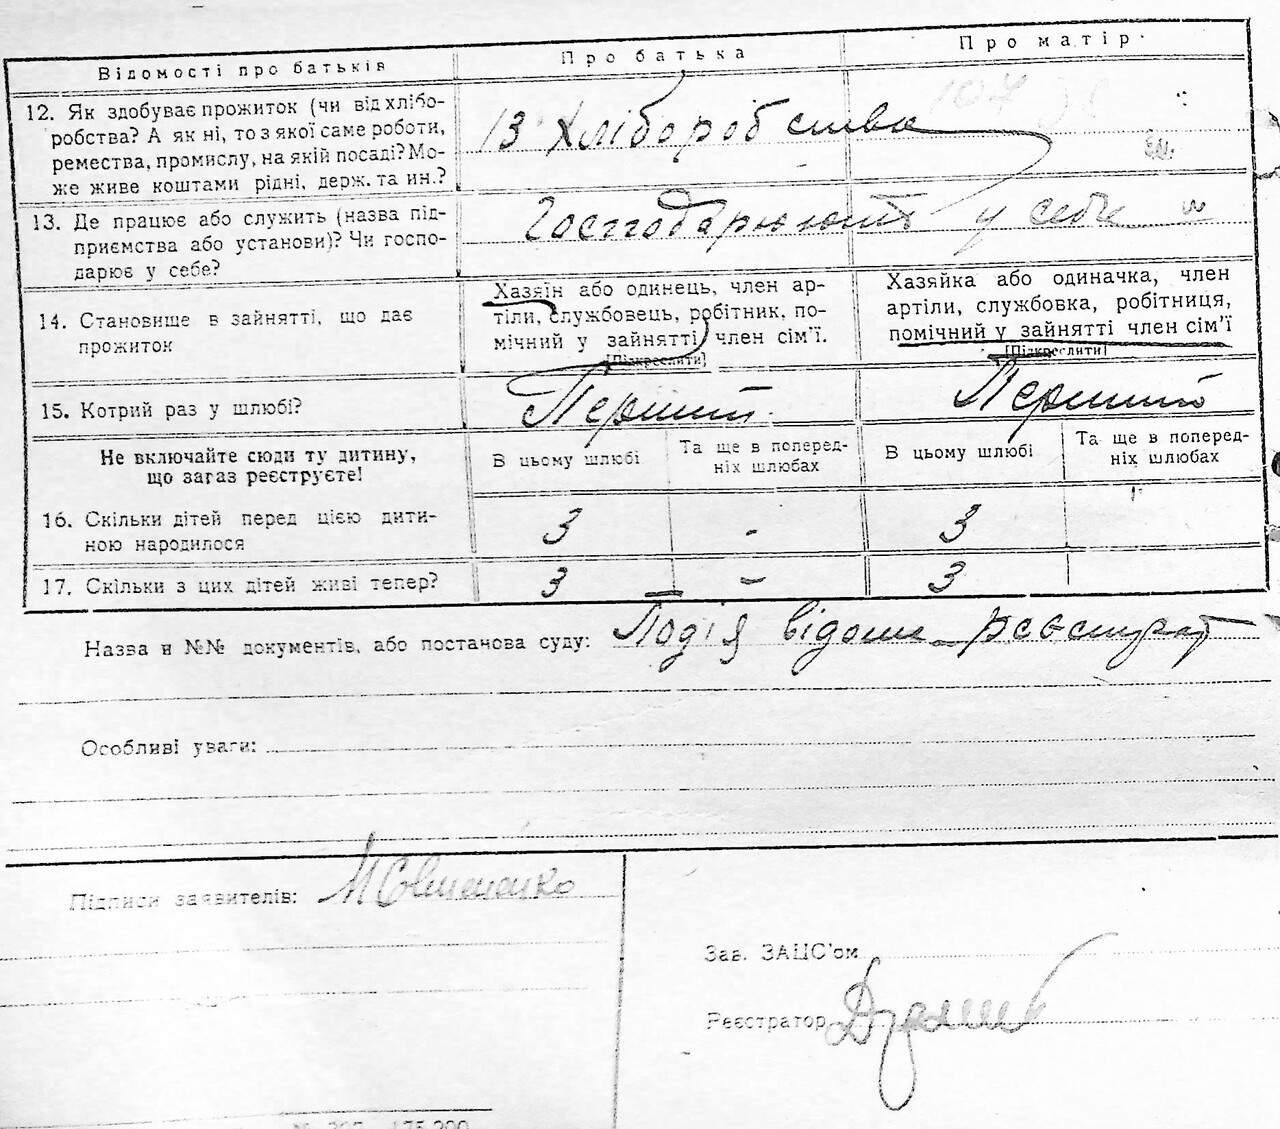 Відомості про батьків
Про батька
Про матір
12. Як здобуває прожиток (чи від хлібо-
робства? А як ні, то з якої саме роботи,
ремества, промислу, на якій посаді? Мо-
же живе коштами рідні, держ. та ин.?
Із Хліборобства
107
13. Де працює або служить (назва під-
приємства або установи)? Чи госпо-
дарює у себе?
Господарюють у себе
14. Становище в зайнятті, що дає
прожиток
Хазяїн або одинець, член ар-
тіли, службовець, робітник, по-
мічний у зайнятті член сім'ї.
[Підкреслити]
Хазяйка або одиначка, член
артіли, службовка, робітниця,
помічний у зайнятті член сім'ї
[Підкреслити]
15. Котрий раз у шлюбі?
Перший
Перший
Не включайте сюди ту дитину,
що зараз реєструєте!
В цьому шлюбі
Та ще в поперед-
ніх шлюбах
В цьому шлюбі
Та ще в поперед-
ніх шлюбах
16. Скільки дітей перед цією дити-
ною народилося
3 - 3
17. Скільки з цих дітей живі тепер?
3 - 3
Назва и №№ документів, або постанова суду: Подія відома реєстрат
Особливі уваги:
Підписи заявителів:
Зав. ЗАЦС'ом
Реєстратор